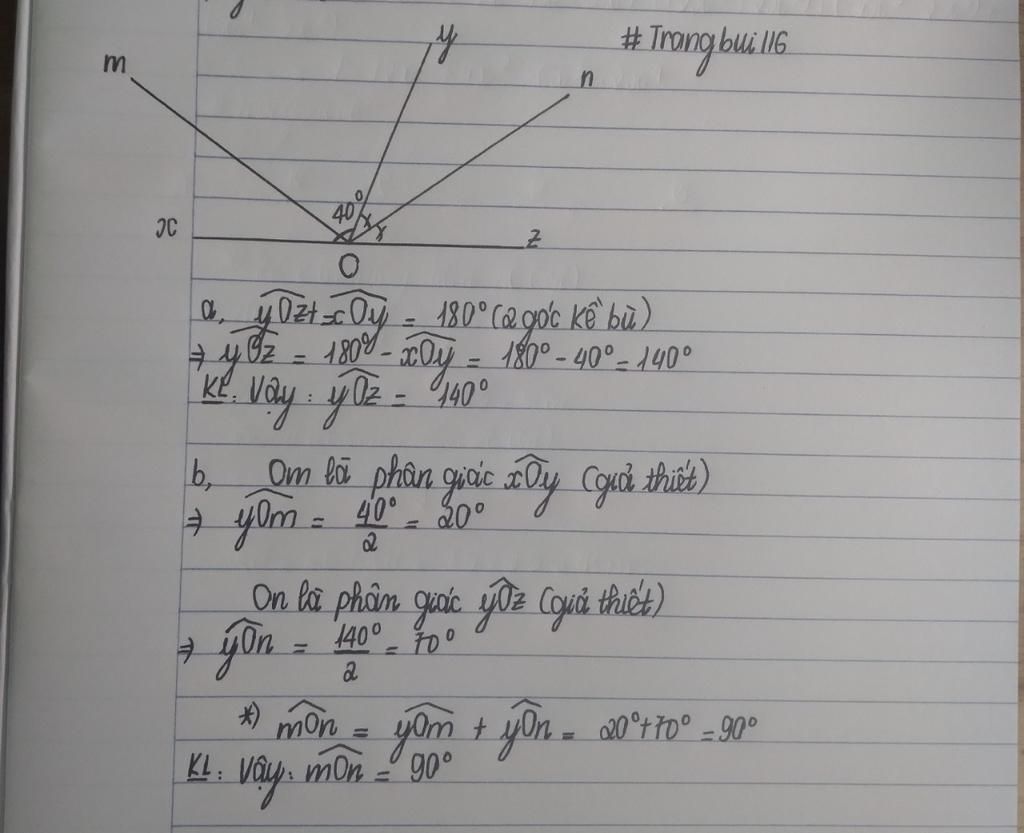 # Trangbui116
m
y
n
40°
x
z
O
a, yÔz + xÔy = 180° (2 góc kề bù)
⇒ yÔz = 180° - xÔy = 180° - 40° = 140°
KL: Vậy: yÔz = 140°
b, Om là phân giác xÔy (giả thiết)
⇒ yÔm = 40°/2 = 20°
On là phân giác yÔz (giả thiết)
⇒ yÔn = 140°/2 = 70°
*) mÔn = yÔm + yÔn = 20° + 70° = 90°
KL: Vậy: mÔn = 90°